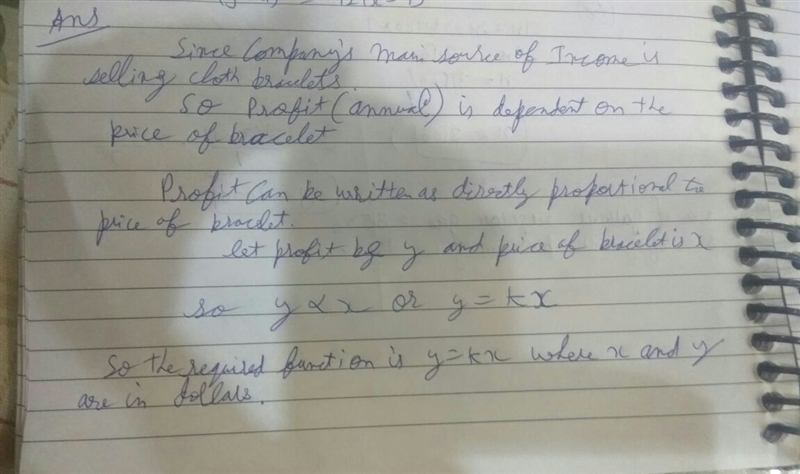 Ans
Since Company's main source of Income is
selling cloth bracelets.
So Profit (annual) is dependent on the
price of bracelet
Profit Can be written as directly proportional to
price of bracelet.
let profit be y and price of bracelet is x
so y ∝ x or y = kx
So the required function is y = kx where x and y
are in dollars.